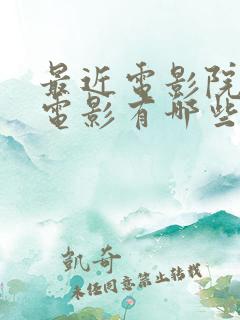 最近電影院
電影有哪些
凱奇
未经同意禁止转载